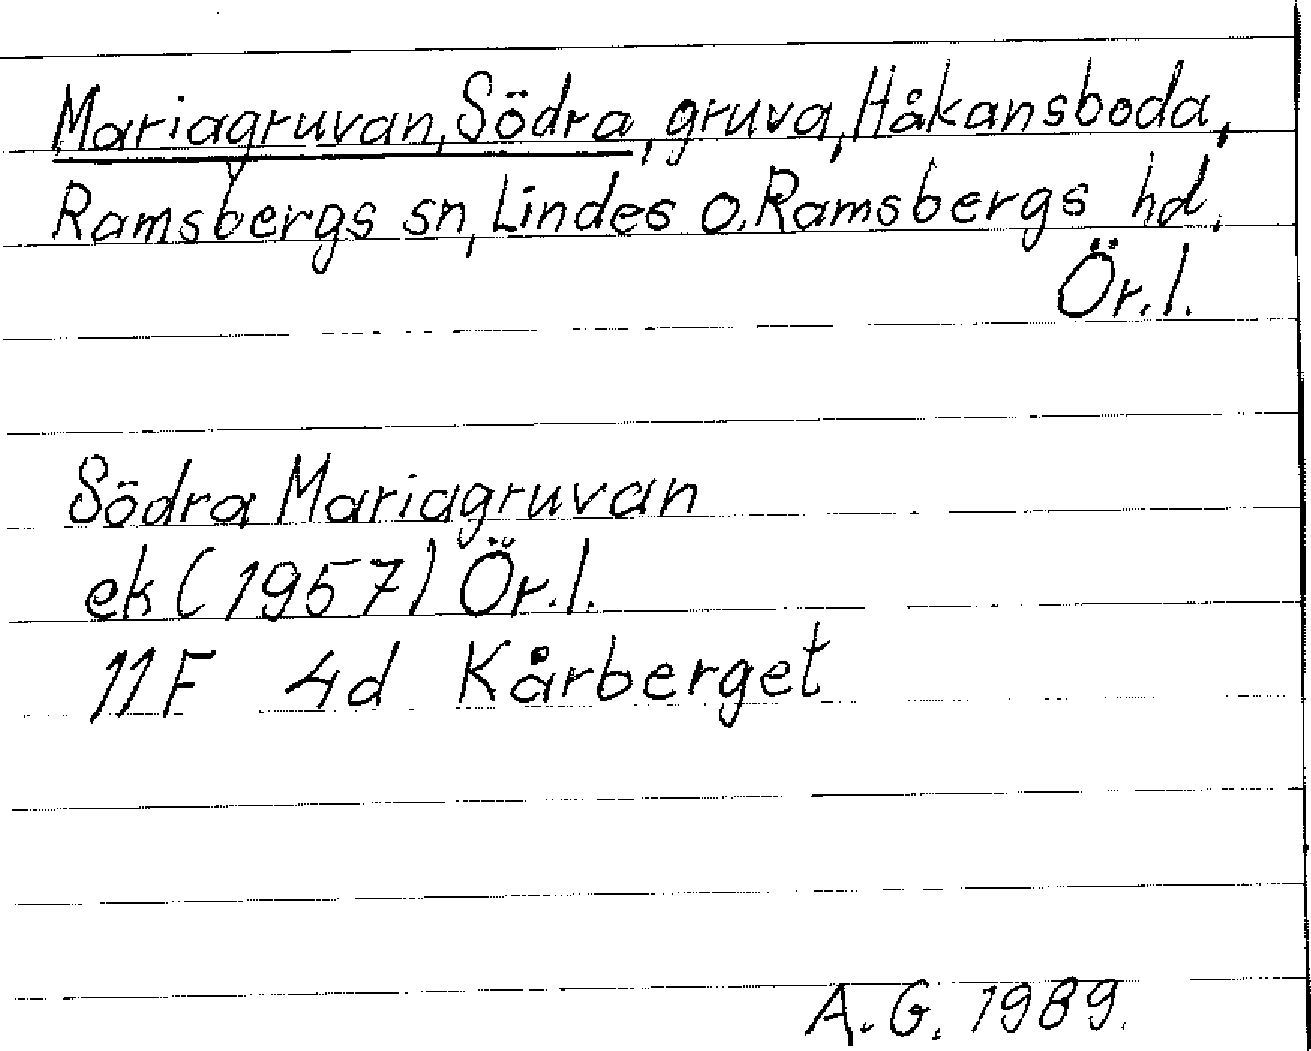 Mariagruvan, Södra, gruva, Håkansboda,
Ramsbergs sn, Lindes o. Ramsbergs hd,
Ör. l.
Södra Mariagruvan
ek (1957) Ör. l.
11F 4d Kårberget
A. G. 1989.